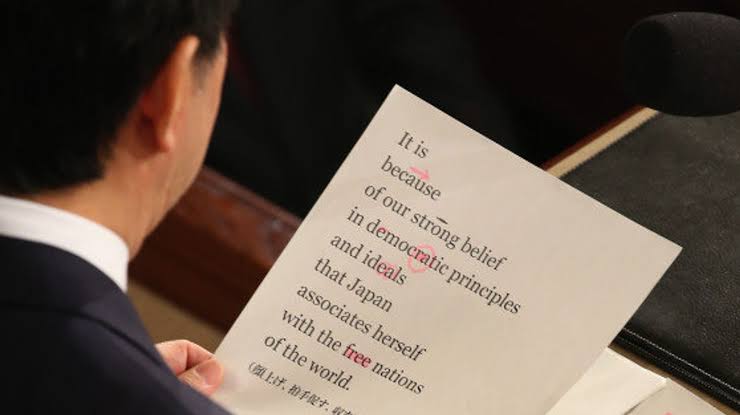 It is
because
of our strong belief
in democratic principles
and ideals
that Japan
associates herself
with the free nations
of the world.
(顔上げ、拍手促す、